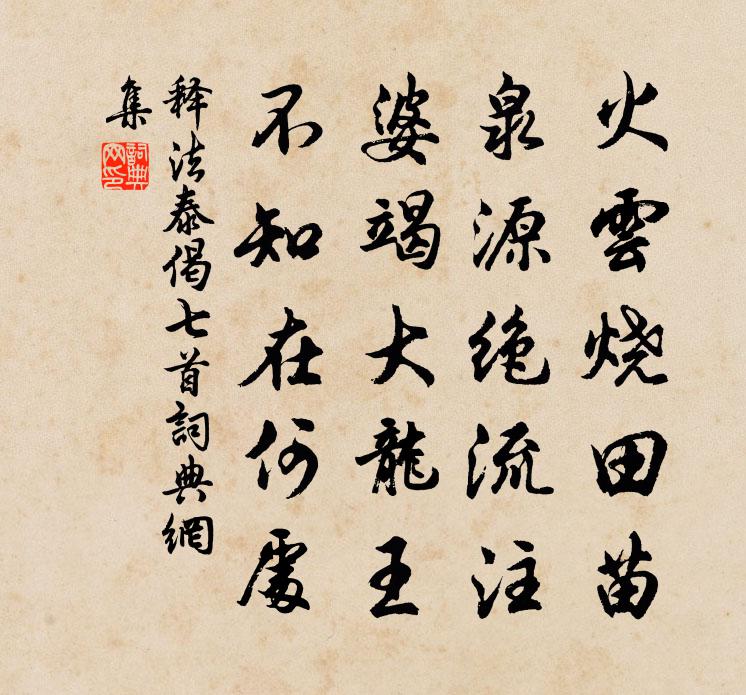 火雲燒田苗
泉源绝流注
婆竭大龍王
不知在何處
释法泰偈七首詞典網
集
詞典網印